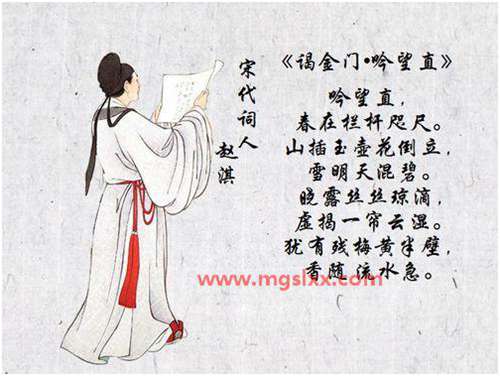 《谒金门•吟望直》
吟望直，
春在栏杆咫尺。
山插玉壶花倒立，
雪明天混碧。
晓露丝丝琼滴，
虚揭一帘云湿。
犹有残梅黄半壁，
香随流水急。
宋代词人
赵淇
www.mgslxx.com